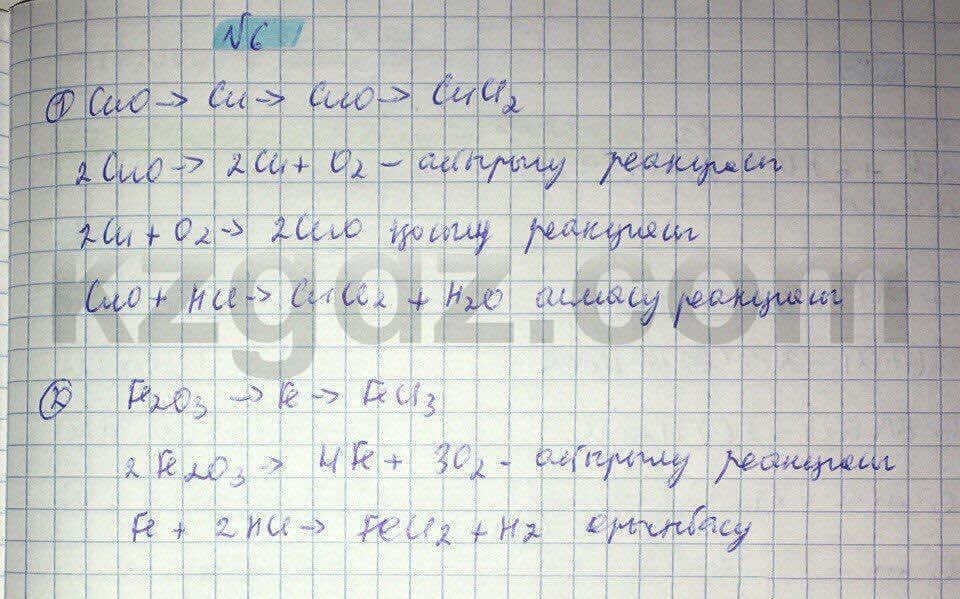 №6
① CuO → Cu → CuO → CuCl2
2CuO → 2Cu + O2 – айырылу реакциясы
2Cu + O2 → 2CuO қосылу реакциясы
CuO + HCl → CuCl2 + H2O алмасу реакциясы
kzgdz.com
② Fe2O3 → Fe → FeCl3
2Fe2O3 → 4Fe + 3O2 – айырылу реакциясы
Fe + 2HCl → FeCl2 + H2 орынбасу